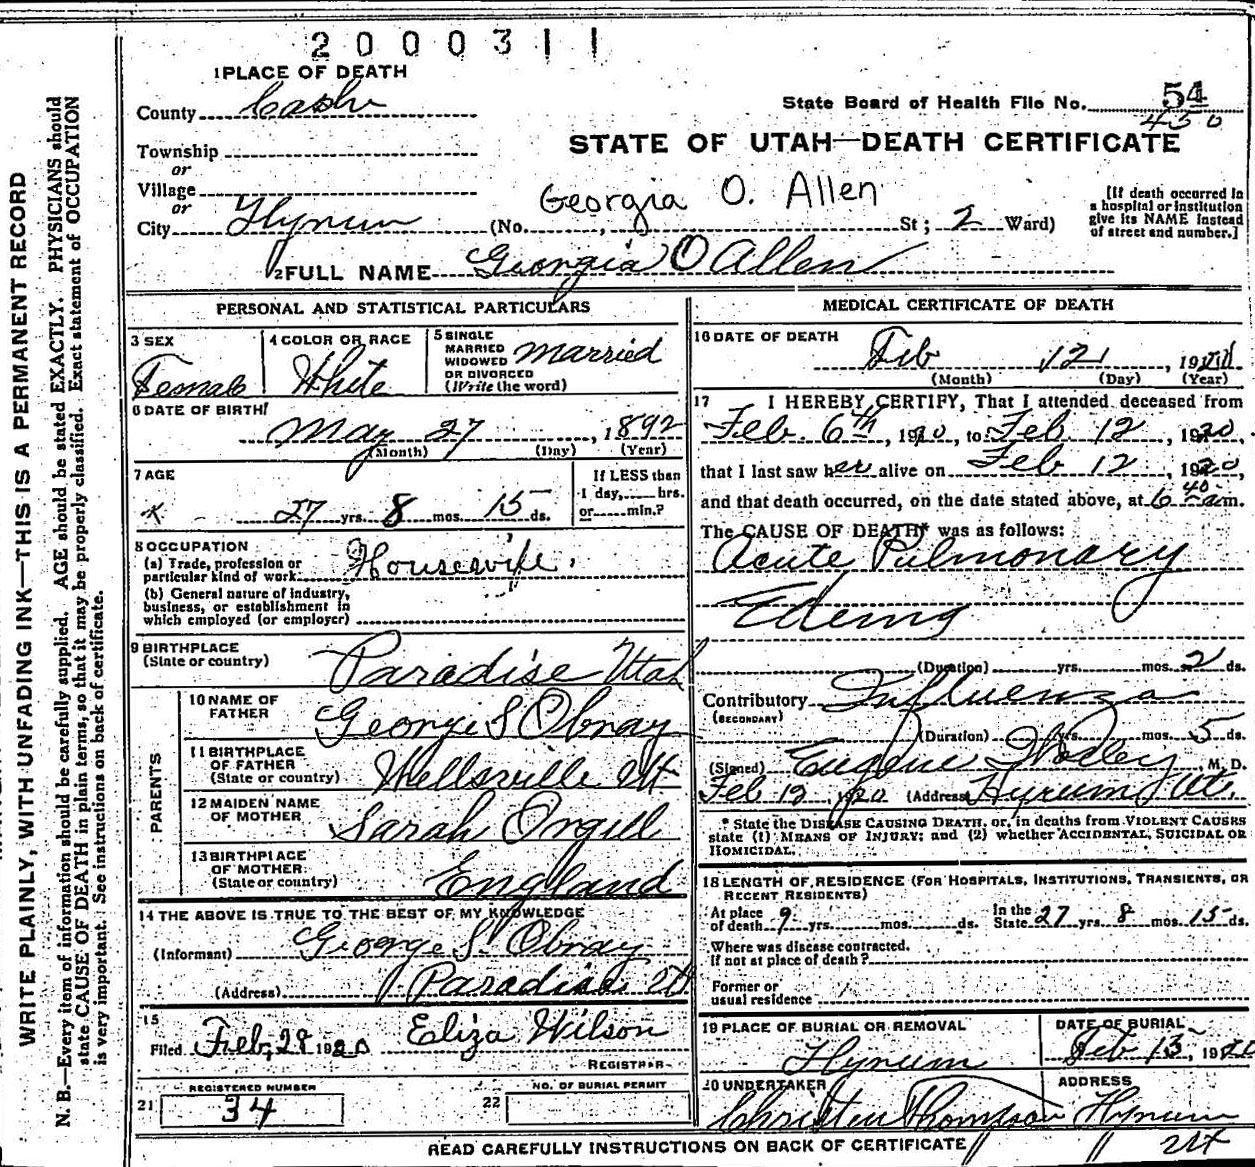 2000311
1 PLACE OF DEATH
County Cache
State Board of Health File No. 54
450
STATE OF UTAH—DEATH CERTIFICATE
Township
or
Village
or
City Hyrum (No. , St; 2 Ward)
Georgia O. Allen
[If death occurred in a hospital or institution give its NAME instead of street and number.]
2 FULL NAME Georgia O Allen
PERSONAL AND STATISTICAL PARTICULARS
3 SEX
Female
4 COLOR OR RACE
White
5 SINGLE
MARRIED
WIDOWED
OR DIVORCED
(Write the word)
Married
6 DATE OF BIRTH
May 27, 1892
(Month) (Day) (Year)
7 AGE
27 yrs. 8 mos. 15 ds.
If LESS than
1 day, hrs.
or min.?
8 OCCUPATION
(a) Trade, profession or
particular kind of work Housewife.
(b) General nature of industry,
business, or establishment in
which employed (or employer)
9 BIRTHPLACE
(State or country) Paradise Utah
PARENTS
10 NAME OF
FATHER George S Obray
11 BIRTHPLACE
OF FATHER
(State or country) Wellsville Ut
12 MAIDEN NAME
OF MOTHER Sarah Orgill
13 BIRTHPLACE
OF MOTHER
(State or country) England
14 THE ABOVE IS TRUE TO THE BEST OF MY KNOWLEDGE
(Informant) George S. Obray
(Address) Paradise Ut
15
Filed Feb, 28 1920 Eliza Wilson
REGISTRAR
REGISTERED NUMBER
21 34
NO. OF BURIAL PERMIT
22
MEDICAL CERTIFICATE OF DEATH
16 DATE OF DEATH
Feb 12, 1920
(Month) (Day) (Year)
17 I HEREBY CERTIFY, That I attended deceased from
Feb. 6th, 1920, to Feb. 12, 1920,
that I last saw her alive on Feb 12, 1920,
and that death occurred, on the date stated above, at 6 40 am.
The CAUSE OF DEATH* was as follows:
Acute Pulmonary
Edema
(Duration) yrs. mos. 2 ds.
Contributory Influenza
(SECONDARY)
(Duration) yrs. mos. 5 ds.
(Signed) Eugene M. D.
Feb 12 1920 (Address) Hyrum Ut.
* State the DISEASE CAUSING DEATH, or, in deaths from VIOLENT CAUSES
state (1) MEANS OF INJURY; and (2) whether ACCIDENTAL, SUICIDAL OR
HOMICIDAL.
18 LENGTH OF RESIDENCE (FOR HOSPITALS, INSTITUTIONS, TRANSIENTS, OR
RECENT RESIDENTS)
At place
of death 9 yrs. mos. ds. In the
State 27 yrs. 8 mos. 15 ds.
Where was disease contracted.
if not at place of death?
Former or
usual residence
19 PLACE OF BURIAL OR REMOVAL
Hyrum
DATE OF BURIAL
Feb 13, 1920
20 UNDERTAKER
Christen Thompson
ADDRESS
Hyrum
Ut
READ CAREFULLY INSTRUCTIONS ON BACK OF CERTIFICATE
WRITE PLAINLY, WITH UNFADING INK—THIS IS A PERMANENT RECORD
N. B.—Every item of information should be carefully supplied. AGE should be stated EXACTLY. PHYSICIANS should
state CAUSE OF DEATH in plain terms, so that it may be properly classified. Exact statement of OCCUPATION
is very important. See instructions on back of certificate.